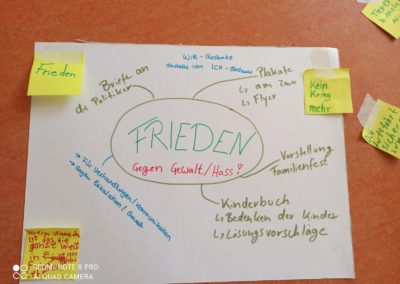 Frieden
Wir-Gedanke
anstelle von ICH-Gedanke
Briefe an
die Politiker
Plakate
↳ am Zaun
↳ Flyer
Kein
Krieg
mehr
FRIEDEN
Gegen Gewalt/Hass!
Vorstellung
Familienfest
→ Für Verhandlungen/Kommunikation
→ gegen Eskalation/Gewalt
Kinderbuch
↳ Bedenken der Kinder
↳ Lösungsvorschläge
mein wunsch
ist das die
ganze Welt
in
REDMI NOTE 8 PRO
AI QUAD CAMERA